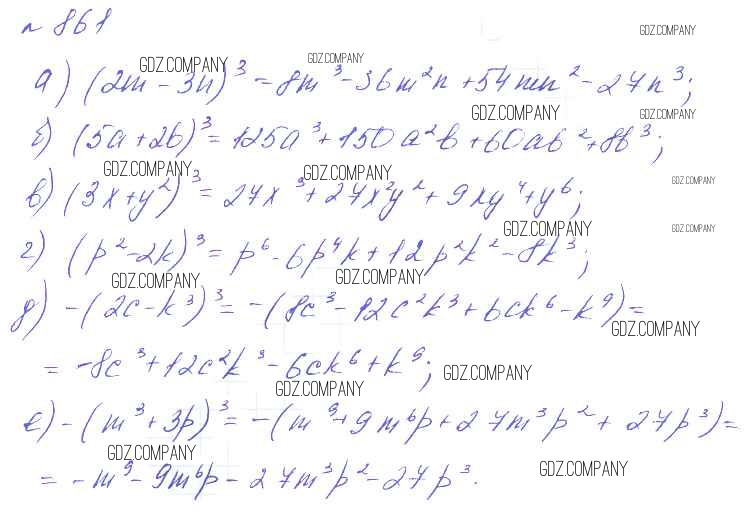 № 861
GDZ.COMPANY
GDZ.COMPANY GDZ.COMPANY
а) (2m - 3n)³ = 8m³ - 36m²n + 54mn² - 27n³;
GDZ.COMPANY GDZ.COMPANY
б) (5a + 2b)³ = 125a³ + 150a²b + 60ab² + 8b³;
GDZ.COMPANY GDZ.COMPANY GDZ.COMPANY
в) (3x + y²)³ = 27x³ + 27x²y² + 9xy⁴ + y⁶;
GDZ.COMPANY GDZ.COMPANY
г) (p² - 2k)³ = p⁶ - 6p⁴k + 12p²k² - 8k³;
GDZ.COMPANY GDZ.COMPANY
д) -(2c - k³)³ = -(8c³ - 12c²k³ + 6ck⁶ - k⁹) =
GDZ.COMPANY
= -8c³ + 12c²k³ - 6ck⁶ + k⁹;
GDZ.COMPANY
GDZ.COMPANY
е) -(m³ + 3p)³ = -(m⁹ + 9m⁶p + 27m³p² + 27p³) =
GDZ.COMPANY GDZ.COMPANY
= -m⁹ - 9m⁶p - 27m³p² - 27p³.